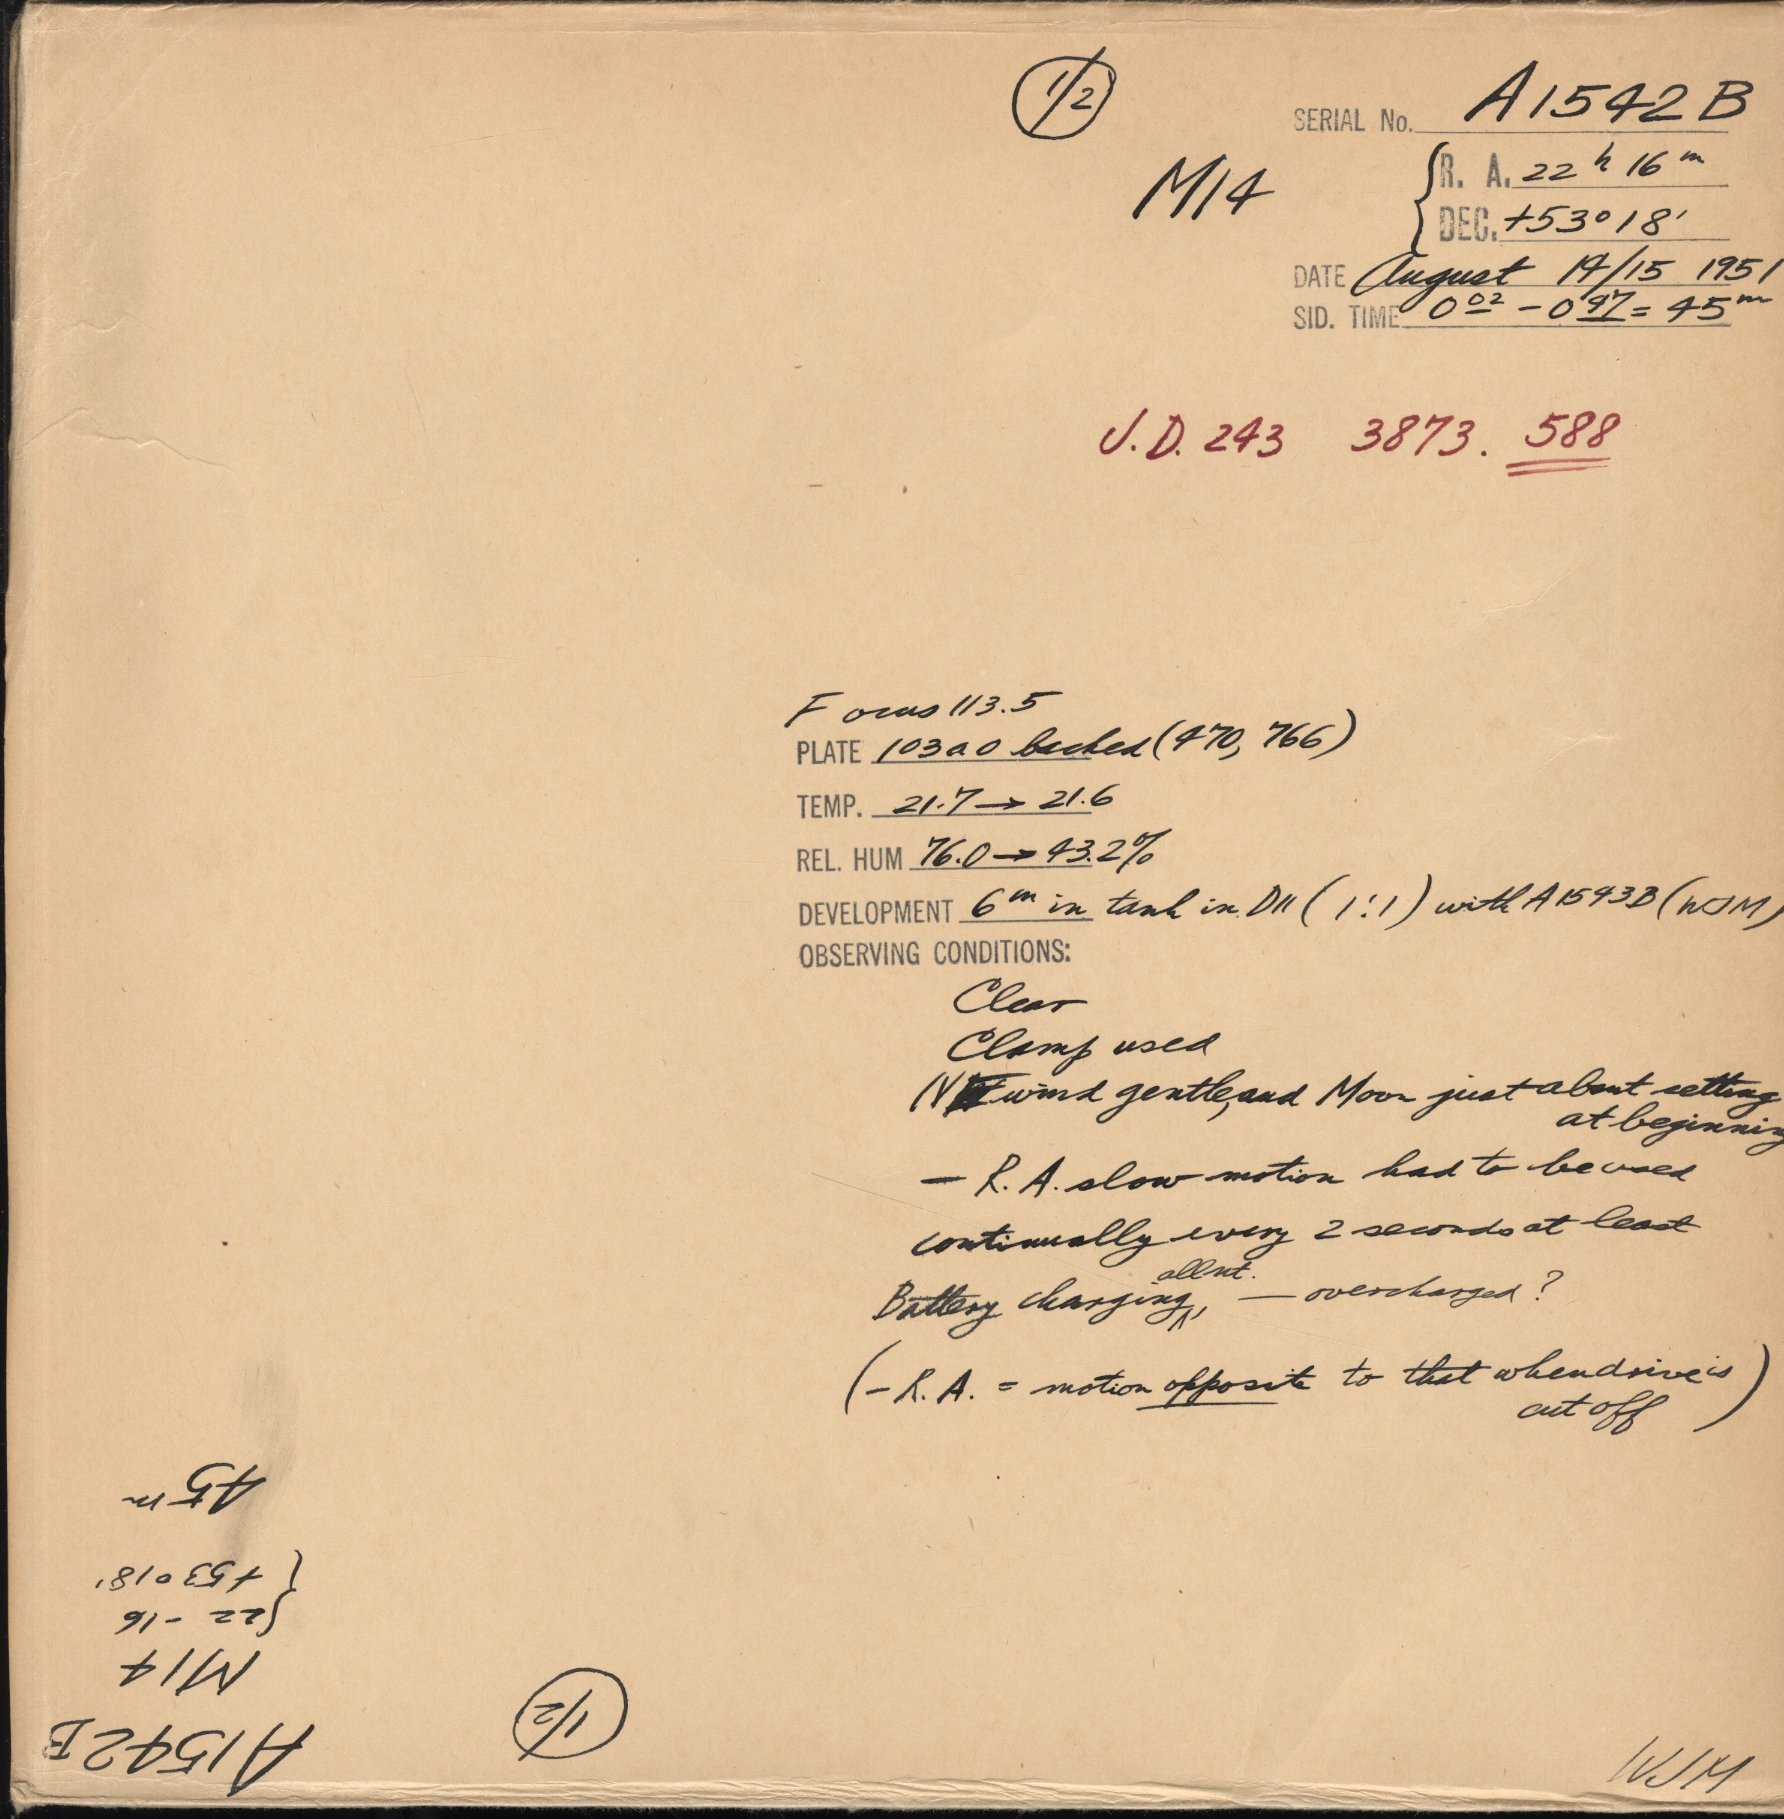 1/2
SERIAL No. A1542B
M14
R. A. 22 h 16 m
DEC. +53° 18'
DATE August 14/15 1951
SID. TIME 0 02 - 0 47 = 45 m
J.D. 243 3873. 588
Focus 113.5
PLATE 103a0 backed (470, 766)
TEMP. 21.7 → 21.6
REL. HUM 76.0 → 43.2%
DEVELOPMENT 6 m in tank in D11 (1:1) with A1543B (WJM)
OBSERVING CONDITIONS:
Clear
Clamp used
wind gentle, and Moon just about setting
at beginning
— R.A. slow motion had to be used
continually every 2 seconds at least
Battery charging all nt. — overcharged?
(- R.A. = motion opposite to that when drive is
cut off)
WJM
1/2
A1542B
M14
22 - 16
+53° 18'
45 m